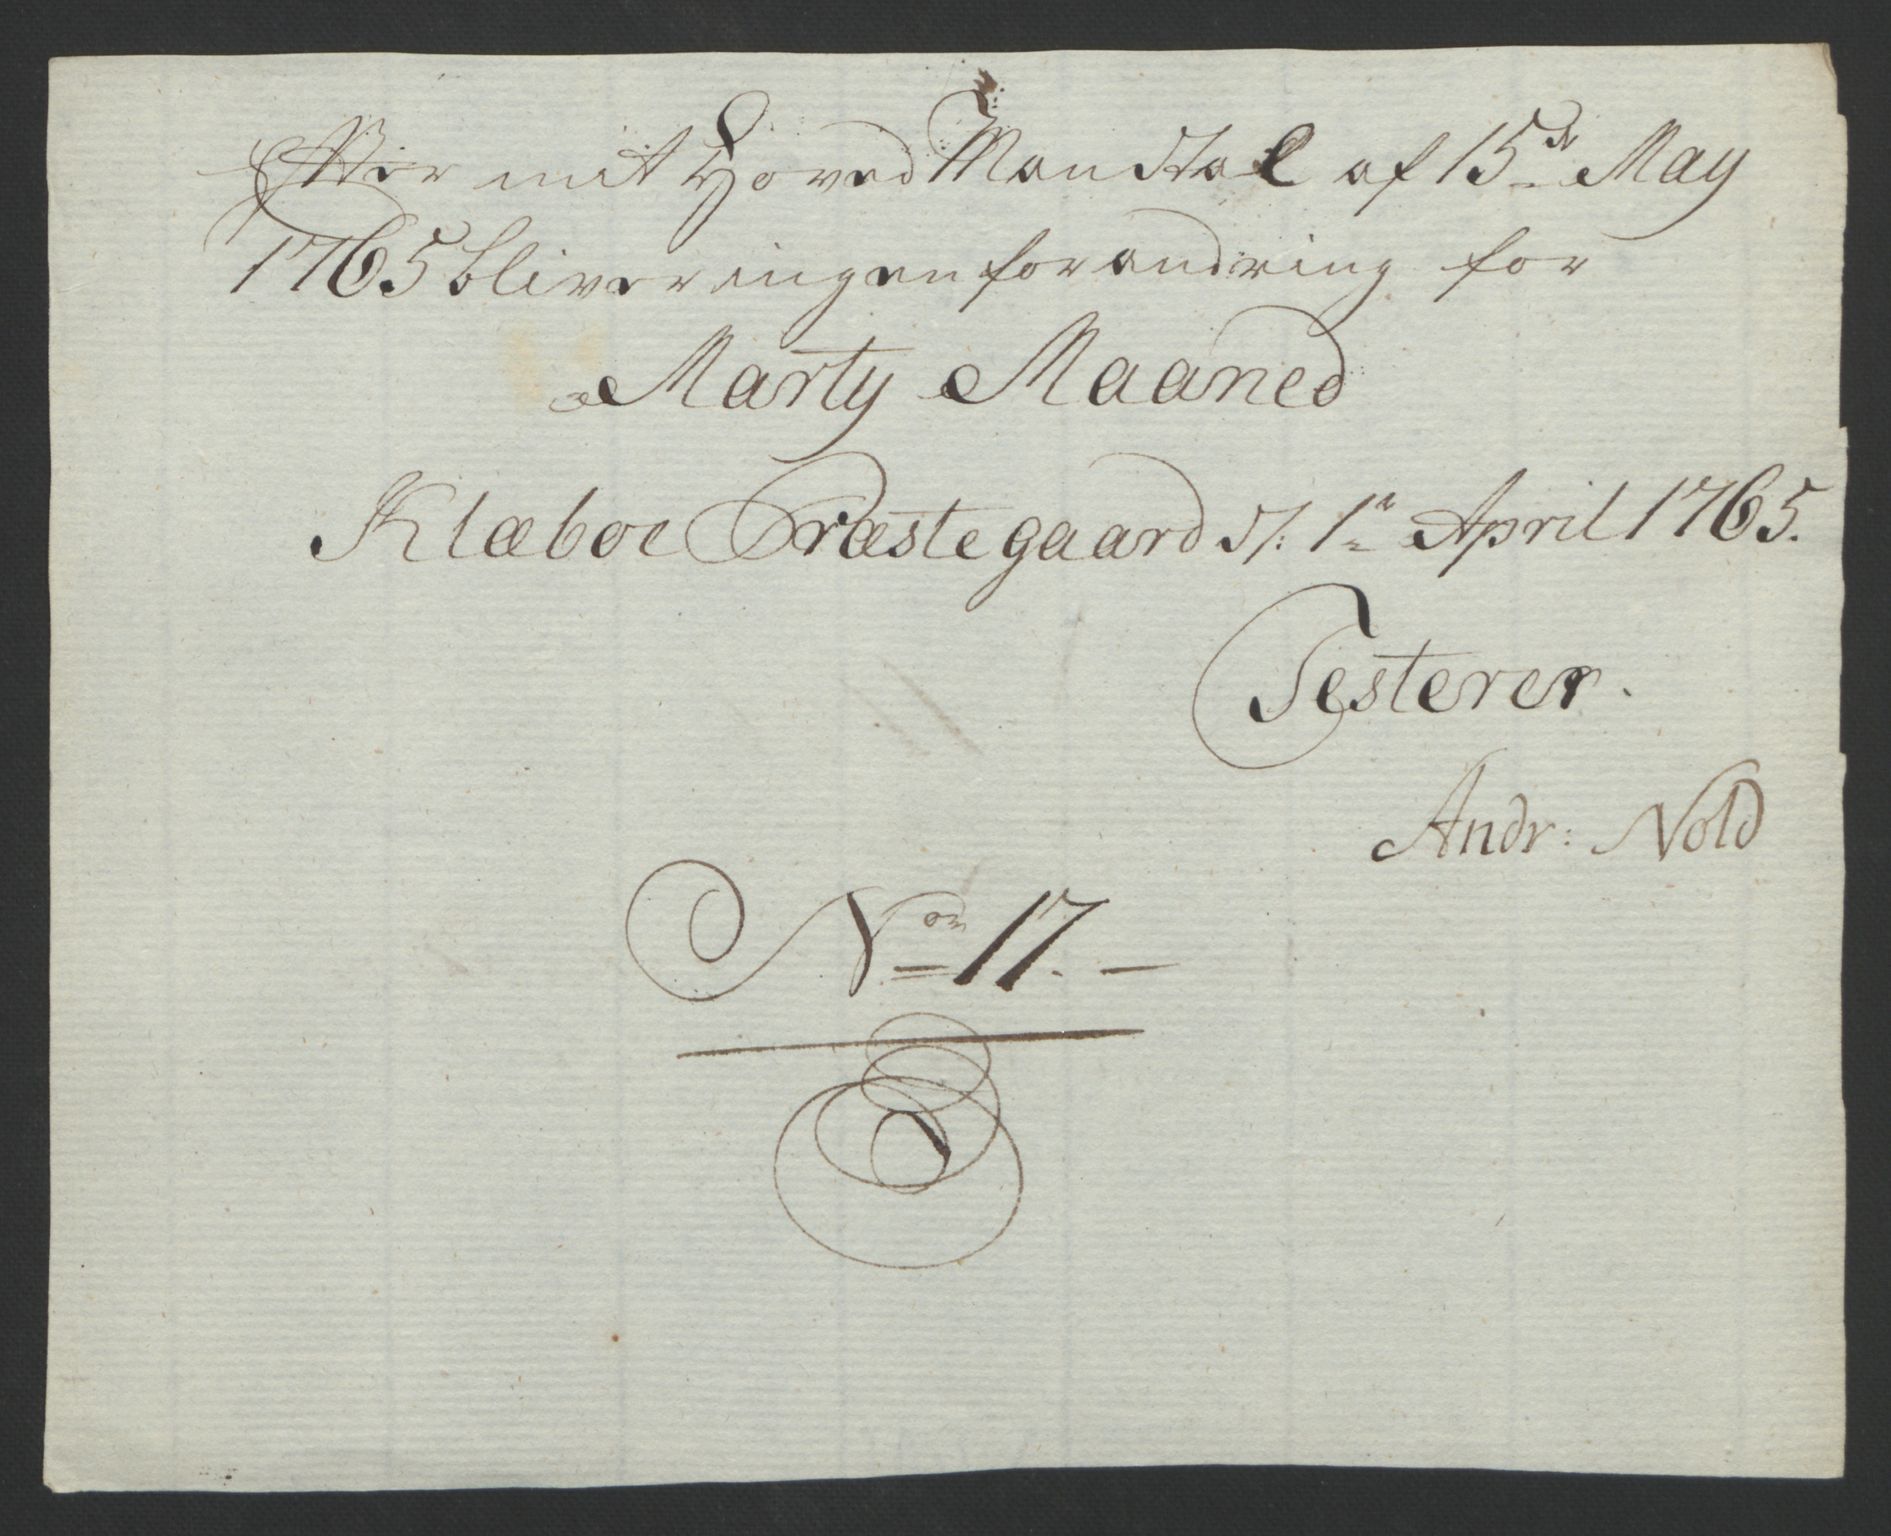 Efter mit Hoved Mandtal af 15de May
1765 bliver ingen forandring for
Marty Maaned
Klæboe Præstegaard d/: 1te April 1765.
Testerer.
Andr: Nold
Nor 17. —